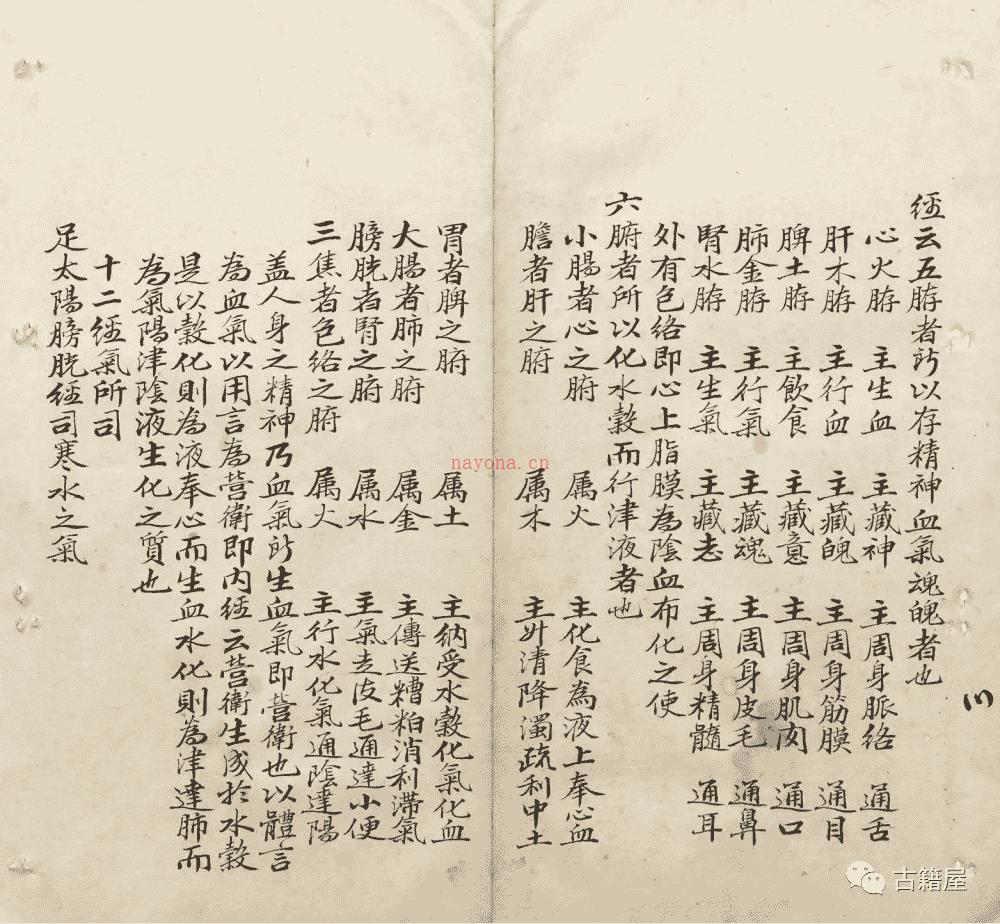 經云五臓者所以存精神血氣魂魄者也
心火臓 主生血 主藏神 主周身脈絡 通舌
肝木臓 主行血 主藏魄 主周身筋膜 通目
脾土臓 主飲食 主藏意 主周身肌肉 通口
肺金臓 主行氣 主藏魂 主周身皮毛 通鼻
腎水臓 主生氣 主藏志 主周身精髓 通耳
外有色絡即心上脂膜為陰血布化之使
六腑者所以化水穀而行津液者也
小腸者心之腑 属火 主化食為液上奉心血
膽者肝之腑 属木 主升清降濁疏利中土
胃者脾之腑 属土 主納受水穀化氣化血
大腸者肺之腑 属金 主傳送糟粕消利滯氣
膀胱者腎之腑 属水 主氣走皮毛通達小便
三焦者色絡之腑 属火 主行水化氣通陰達陽
盖人身之精神乃血氣所生血氣即營衛也以體言
為血氣以用言為營衛即内經云營衛生成於水穀
是以穀化則為液奉心而生血水化則為津達肺而
為氣陽津陰液生化之質也
十二經氣所司
足太陽膀胱經司寒水之氣
nayona.cn
古籍屋